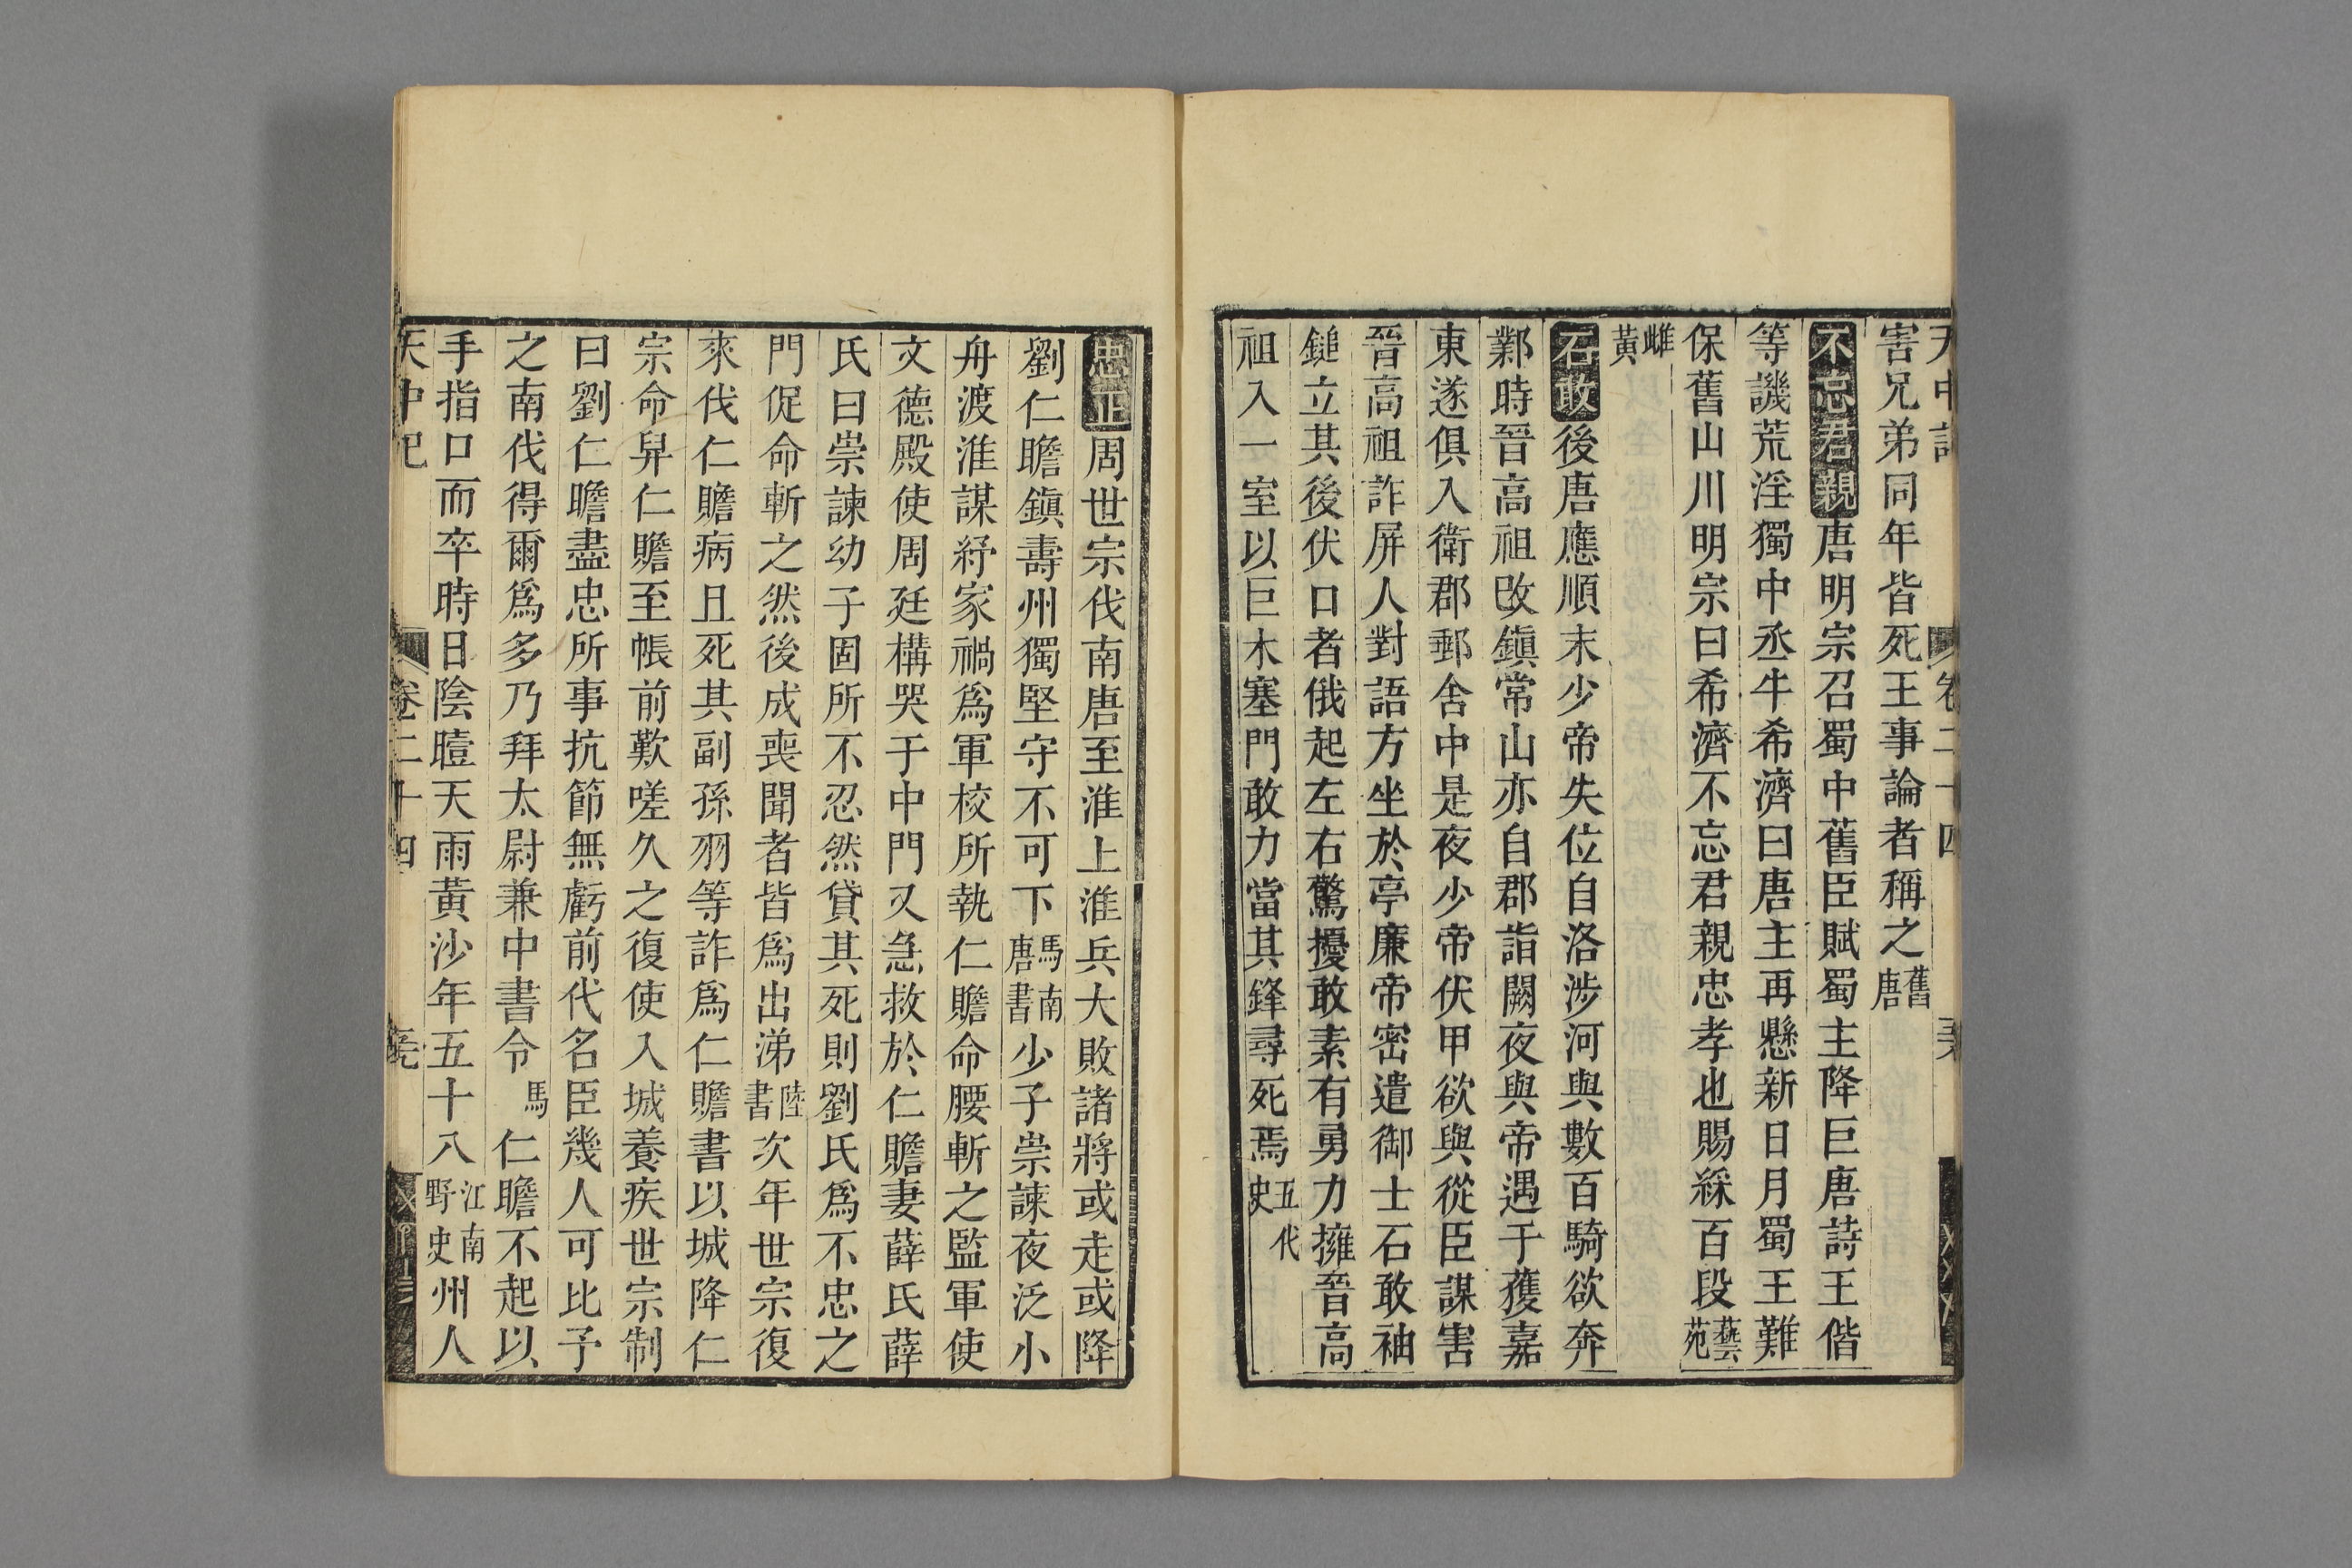 害兄弟同年皆死王事論者稱之舊唐
不忘君親唐明宗召蜀中舊臣賦蜀主降巨唐詩王偕
等譏荒淫獨中丞牛希濟曰唐主再懸新日月蜀王難
保舊山川明宗曰希濟不忘君親忠孝也賜綵百段藝苑
雌黃
石敢後唐應順末少帝失位自洛涉河與數百騎欲奔
鄴時晉高祖改鎮常山亦自郡詣闕夜與帝遇于獲嘉
東遂俱入衛郡郵舍中是夜少帝伏甲欲與從臣謀害
晉高祖詐屏人對語方坐於亭廉帝密遣御士石敢袖
鎚立其後伏口者俄起左右驚擾敢素有勇力擁晉高
祖入一室以巨木塞門敢力當其鋒尋死焉五代史
忠正周世宗伐南唐至淮上淮兵大敗諸將或走或降
劉仁瞻鎮壽州獨堅守不可下馬南唐書少子崇諫夜泛小
舟渡淮謀紓家禍爲軍校所執仁贍命腰斬之監軍使
文德殿使周廷構哭于中門又急救於仁贍妻薛氏薛
氏曰崇諫幼子固所不忍然貸其死則劉氏爲不忠之
門促命斬之然後成喪聞者皆爲出涕陸書次年世宗復
來伐仁贍病且死其副孫羽等詐爲仁贍書以城降仁
宗命舁仁贍至帳前歎嗟久之復使入城養疾世宗制
曰劉仁瞻盡忠所事抗節無虧前代名臣幾人可比予
之南伐得爾爲多乃拜太尉兼中書令馬仁瞻不起以
手指口而卒時日陰曀天雨黃沙年五十八江南野史州人
天中記 卷二十四